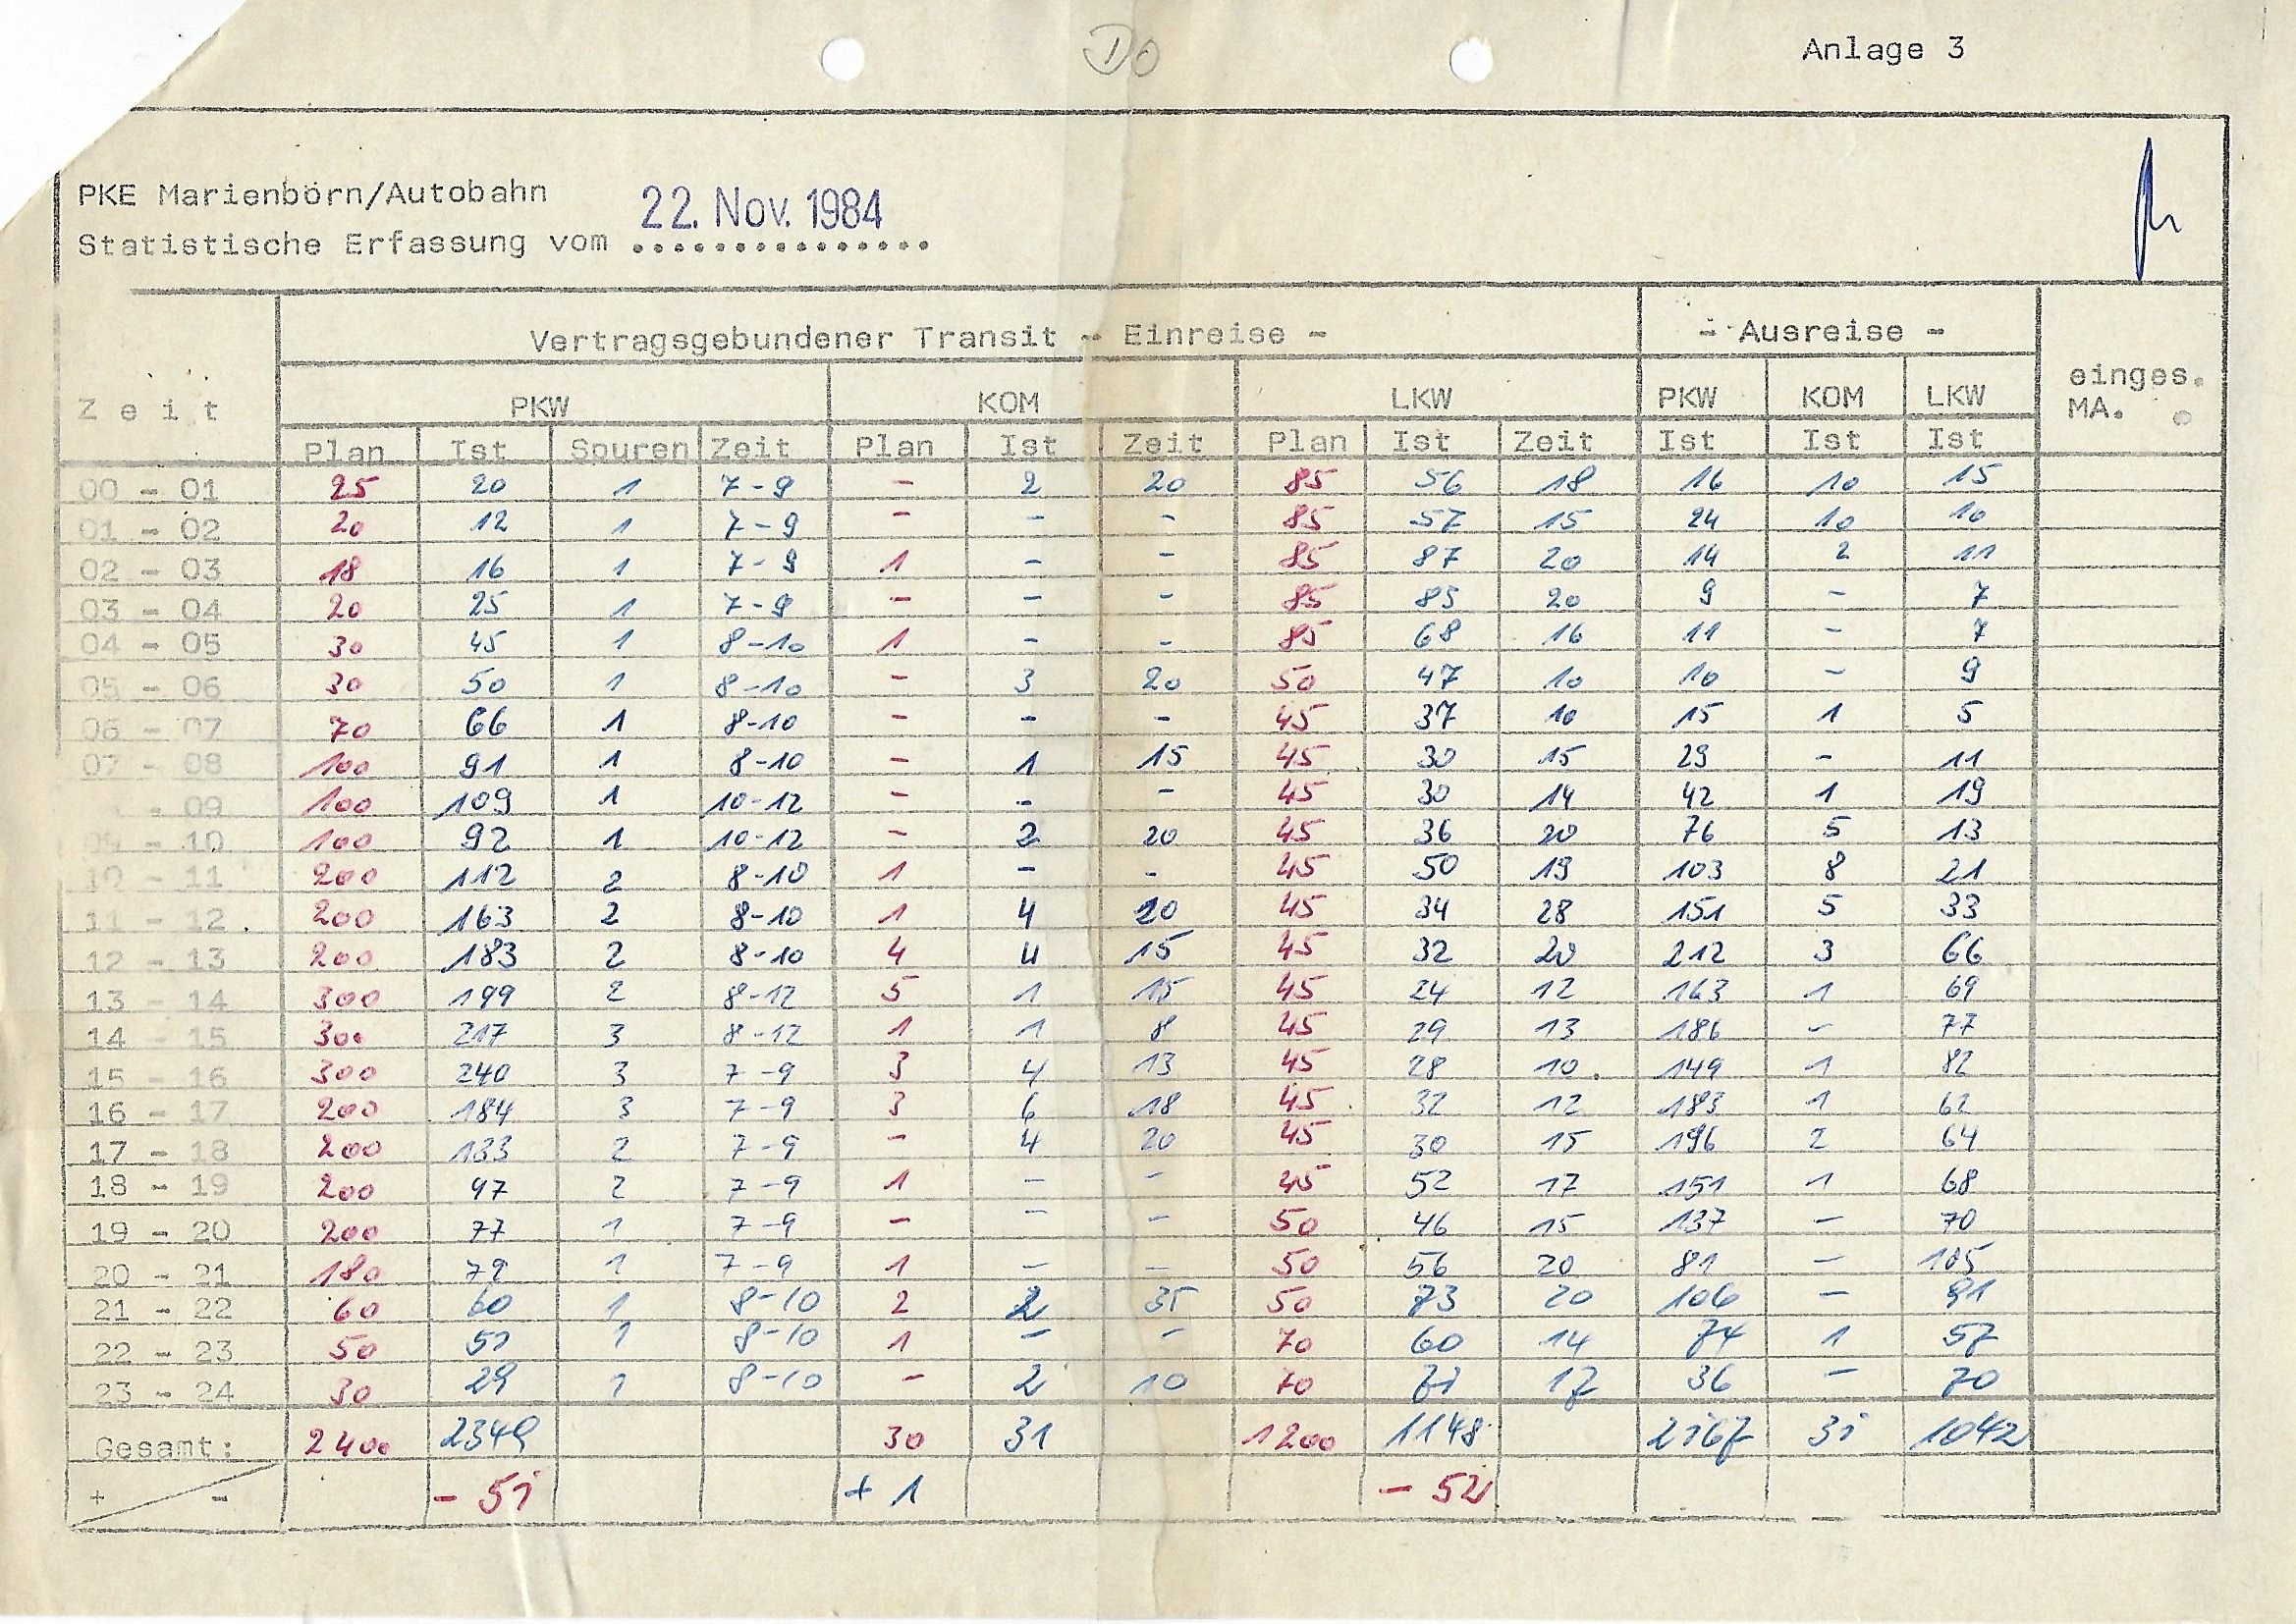 DO
Anlage 3
PKE Marienborn/Autobahn
22. Nov. 1984
Statistische Erfassung vom ................
Vertragsgebundener Transit - Einreise - - Ausreise -
einges.
MA.
Zeit PKW KOM LKW PKW KOM LKW
Plan Ist Spuren Zeit Plan Ist Zeit Plan Ist Zeit Ist Ist Ist
00 - 01 25 20 1 7-9 - 2 20 85 56 18 16 10 15
01 - 02 20 12 1 7-9 - - - 85 57 15 24 10 10
02 - 03 18 16 1 7-9 1 - - 85 87 20 14 2 11
03 - 04 20 25 1 7-9 - - - 85 83 20 9 - 7
04 - 05 30 45 1 8-10 1 - - 85 68 16 11 - 7
05 - 06 30 50 1 8-10 - 3 20 50 47 10 10 - 9
06 - 07 70 66 1 8-10 - - - 45 37 10 15 1 5
07 - 08 100 91 1 8-10 - 1 15 45 30 15 29 - 11
- 09 100 109 1 10-12 - - - 45 30 14 42 1 19
09 - 10 100 92 1 10-12 - 2 20 45 36 20 76 5 13
10 - 11 200 112 2 8-10 1 - - 45 50 19 103 8 21
11 - 12 200 163 2 8-10 1 4 20 45 34 28 151 5 33
12 - 13 200 183 2 8-10 4 4 15 45 32 20 212 3 66
13 - 14 300 199 2 8-12 5 1 15 45 24 12 163 1 69
14 - 15 300 217 3 8-12 1 1 8 45 29 13 186 - 77
15 - 16 300 240 3 7-9 3 4 13 45 28 10 149 1 82
16 - 17 200 184 3 7-9 3 6 18 45 32 12 183 1 62
17 - 18 200 133 2 7-9 - 4 20 45 30 15 196 2 64
18 - 19 200 97 2 7-9 1 - - 45 52 17 151 1 68
19 - 20 200 77 1 7-9 - - - 50 46 15 137 - 70
20 - 21 180 79 1 7-9 1 - - 50 56 20 81 - 105
21 - 22 60 60 1 8-10 2 2 35 50 73 20 106 - 91
22 - 23 50 51 1 8-10 1 - - 70 60 14 74 1 57
23 - 24 30 29 1 8-10 - 2 10 70 71 17 36 - 70
Gesamt: 2400 2349 30 31 1200 1148 2167 31 1042
+ - - 51 + 1 - 52